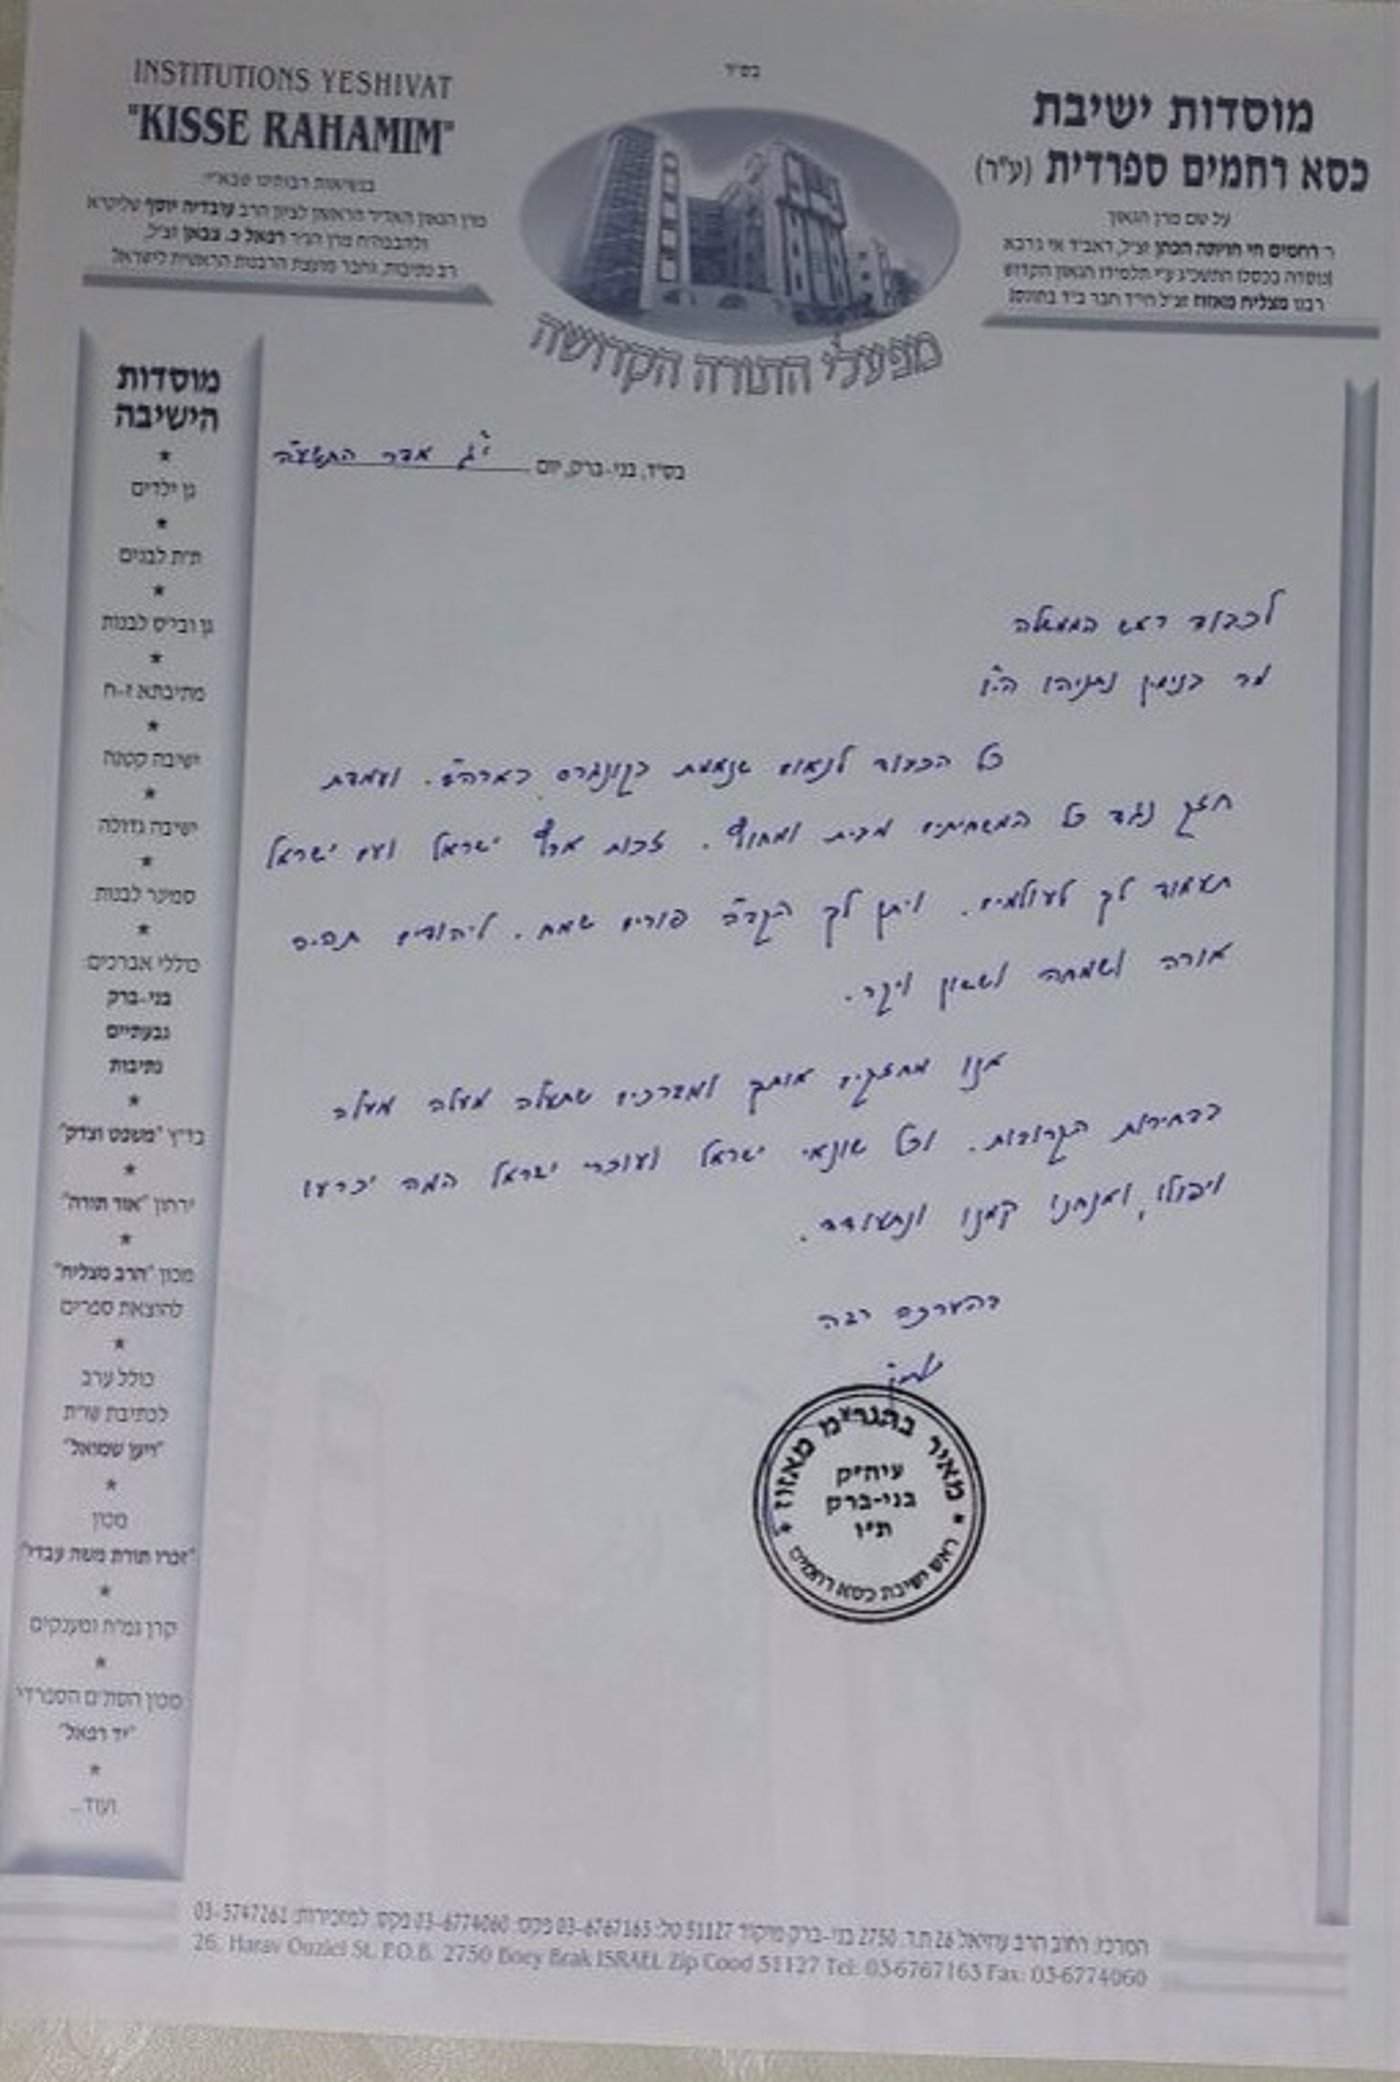 בס"ד
INSTITUTIONS YESHIVAT
"KISSE RAHAMIM"
בנשיאות רבותינו שבא"י:
מרן הגאון האדיר הראשון לציון הרב עובדיה יוסף שליט"א
ולהבבח"ח מרן הגר רפאל כ. צבאן זצ"ל,
רב נתיבות, וחבר מועצת הרבנות הראשית לישראל
מוסדות ישיבת
כסא רחמים ספרדית (ע"ר)
על שם מרן הגאון
ר' רחמים חי חויתה הכהן זצ"ל, ראב"ד אי גרבא
נוסדה בכסלו התשכ"ג ע"י תלמידו הגאון הקדוש
רבנו מצליח מאזוז זצ"ל הי"ד חבר ב"ד בתוניס
מפעלי התורה הקדושה
בס"ד, בני-ברק, יום י"ג אדר התשע"ה
לכבוד ראש הממשלה
מר בנימין נתניהו הי"ו
כל הכבוד לנאום שנאמת בקונגרס בארה"ב. ועמדת
חזק נגד כל המשחיתים מבית ומחוץ. זכות ארץ ישראל ועם ישראל
תעמוד לך לעולמים. ויתן לך הקב"ה פורים שמח. ליהודים תהיה
אורה ושמחה וששון ויקר.
אנו מחזקים אותך ומברכים שתעלה מעלה מעלה
בבחירות הקרובות. וכל שונאי ישראל ועוכרי ישראל המה יכרעו
ויפולו, ואנחנו קמנו ונתעודד.
בהערכה רבה
מאיר בהגר"מ מאזוז
עיה"ק
בני-ברק
ת"ו
ראש ישיבת כסא רחמים
מוסדות
הישיבה
*
גן ילדים
*
ת"ת לבנים
*
גן ובי"ס לבנות
*
מתיבתא ז-ח
*
ישיבה קטנה
*
ישיבה גדולה
*
סמינר לבנות
*
כוללי אברכים:
בני-ברק
גבעתיים
נתיבות
*
בד"ץ "משפט וצדק"
*
ירחון "אור תורה"
*
מכון "הרב מצליח"
להוצאת ספרים
*
כולל ערב
לכתיבת שו"ת
"ויען שמואל"
*
מכון
"זכרו תורת משה עבדי"
*
קרן גמ"ח ומענקים
*
מכון הסת"ם הספרדי
"יד רפאל"
*
ועוד...
המרכז: רחוב הרב עוזיאל 26 ת.ד. 2750 בני-ברק מיקוד 51127 טל: 03-6767163 פקס: 03-6774060 פקס למזכירות: 03-5747261
26, Harav Ouziel St. P.O.B. 2750 Bney Brak ISRAEL Zip Cood 51127 Tel: 03-6767163 Fax: 03-6774060